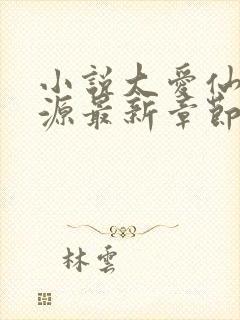 小說太愛仙
源最新章節
林雲